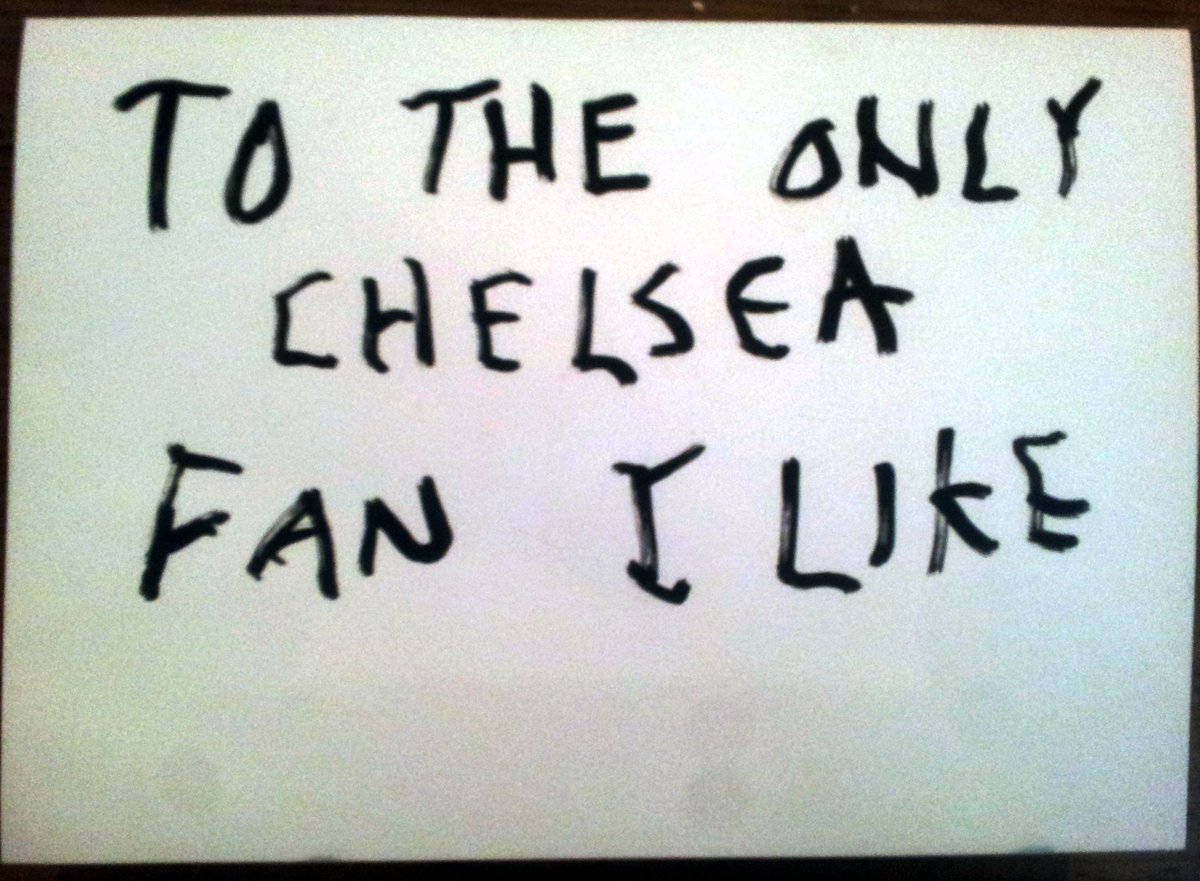 TO THE ONLY
CHELSEA
FAN I LIKE